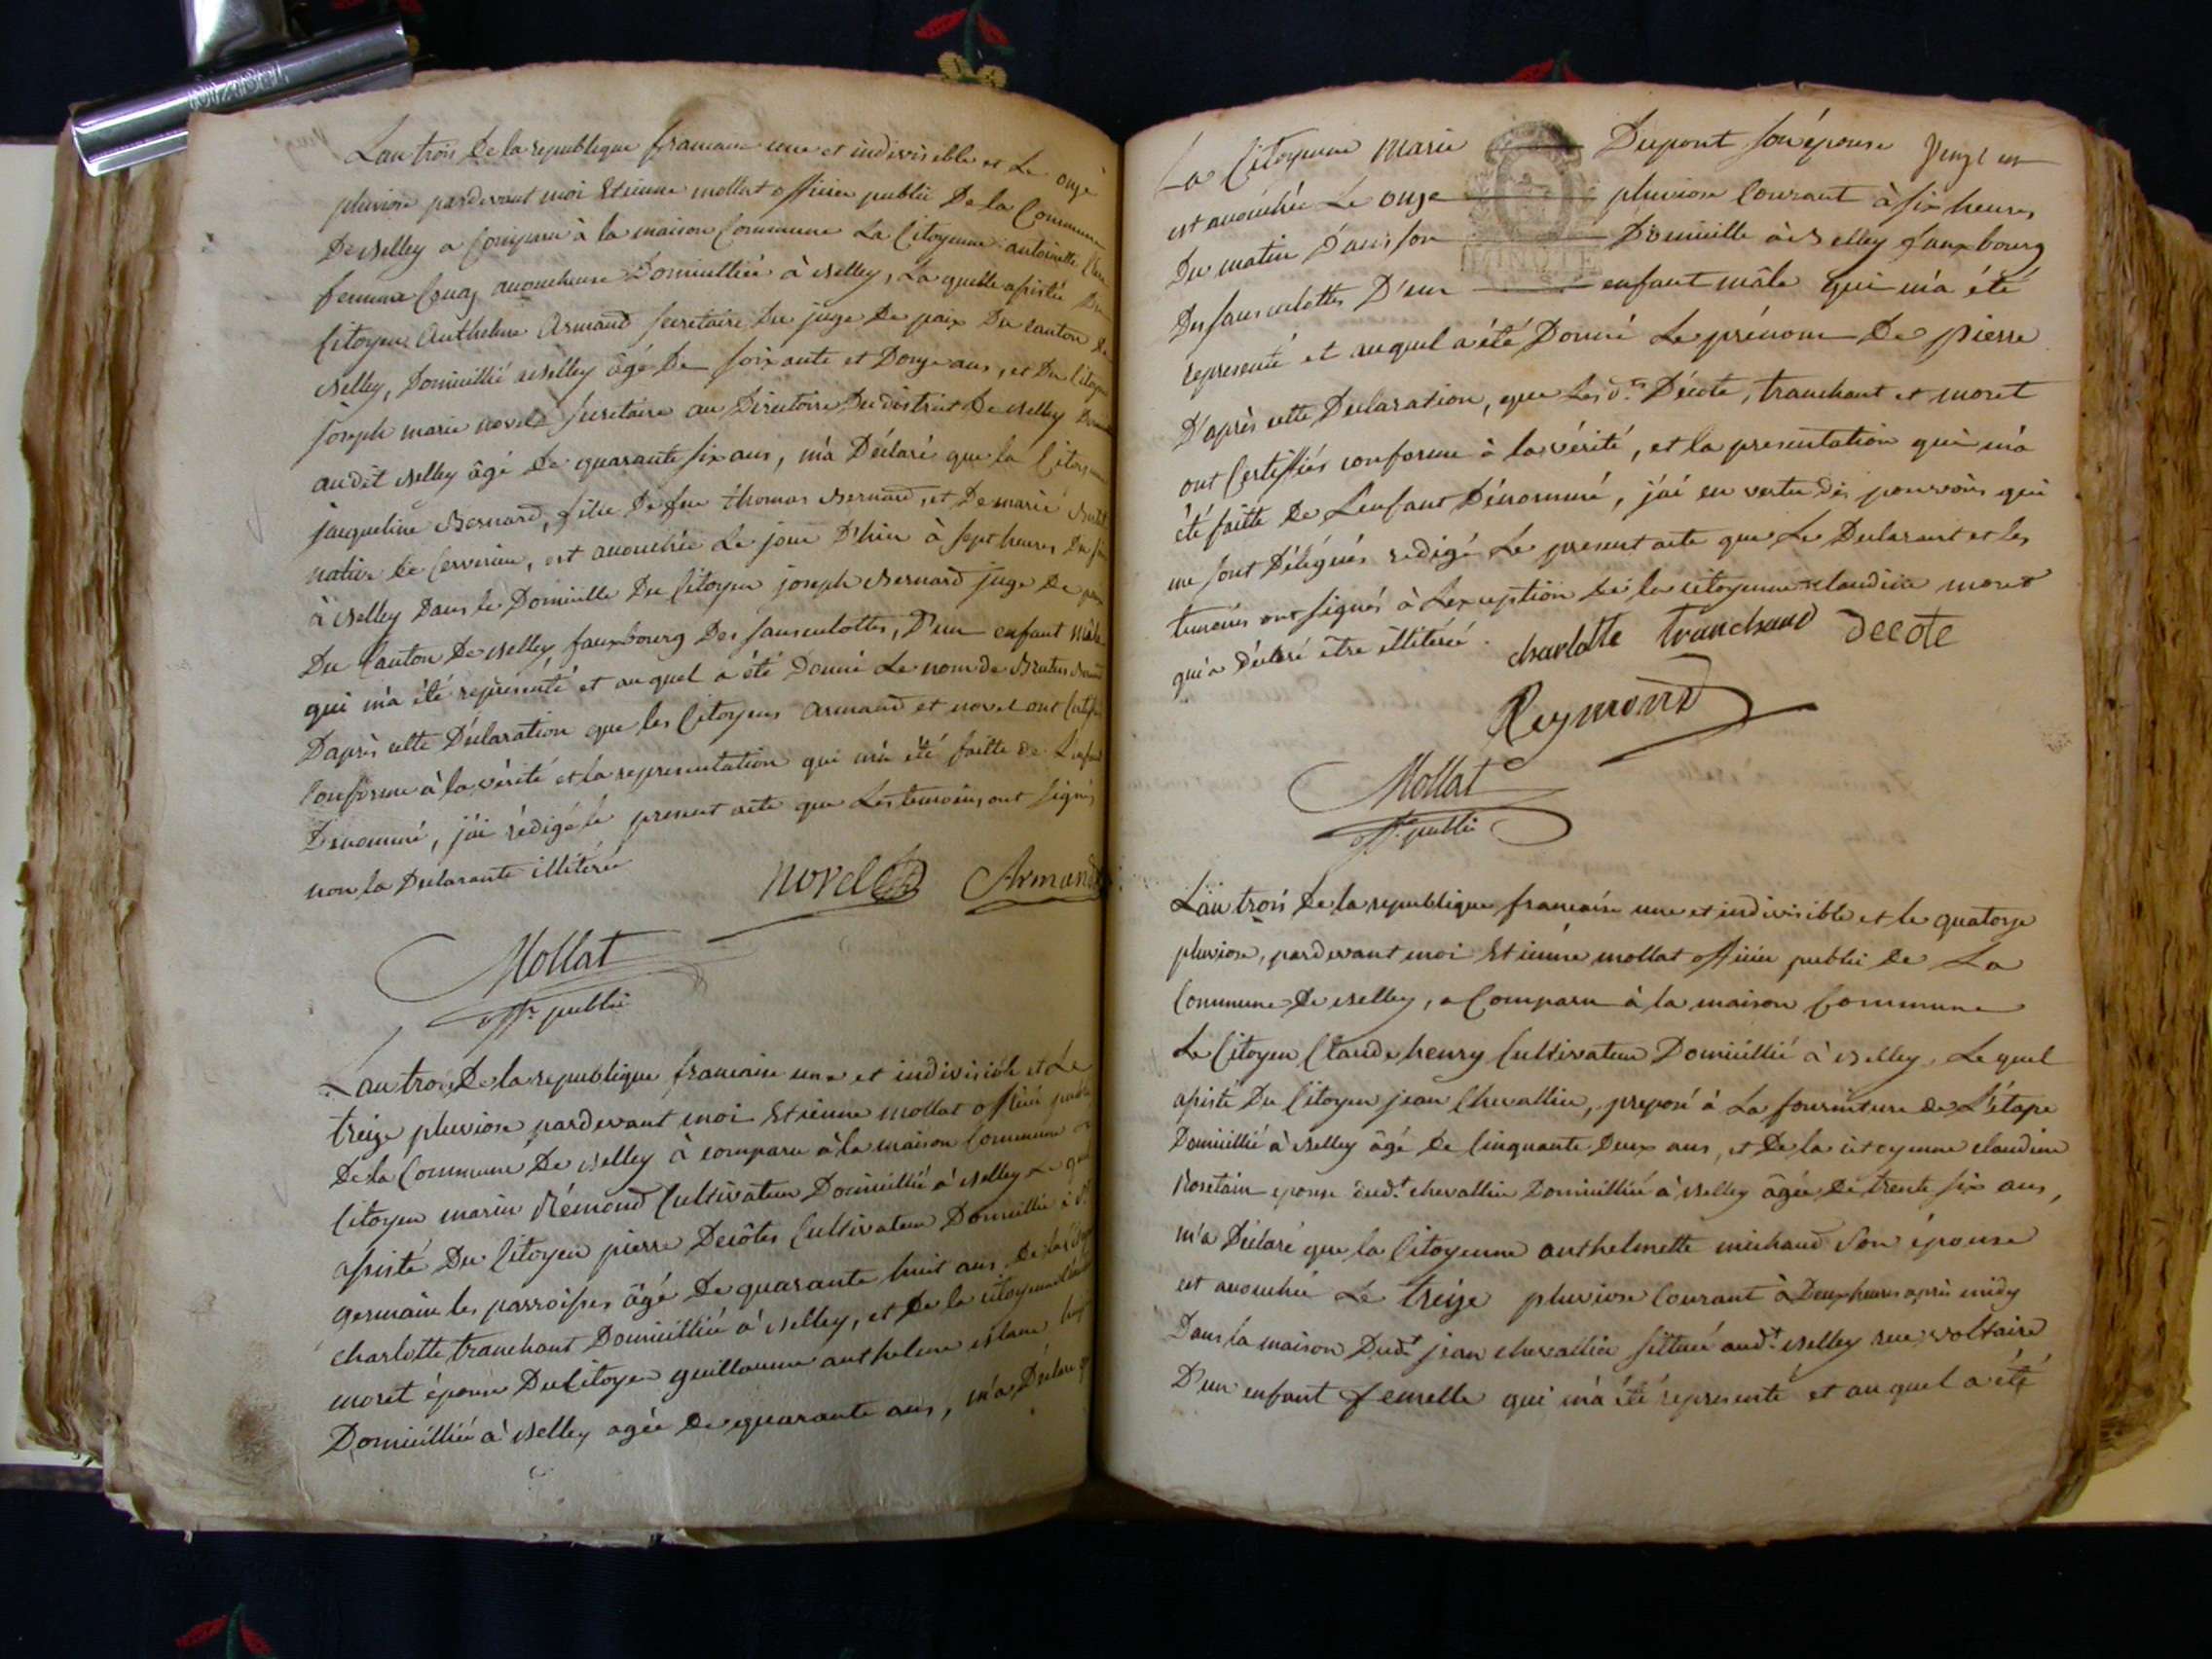 L'an trois de la republique francaise une et indivisible et Le onze
pluviose pardevant moi Etienne mollat officier public De la Commune
De Belley a comparu à la maison Commune La Citoyenne antoinette
femme Cuaz accoucheuse Domicilliée à Belley, La quelle assistée Du
Citoyen Anthelme Armand secretaire du juge De paix Du canton De
Belley, Domicillié à Belley âgé De soixante et Douze ans, et Du Citoyen
joseph marie novel secretaire au Directoire Du district De Belley
audit Belley âgé De quarante six ans, m'a Déclaré que la Citoyenne
jacqueline Bernard, fille De feu thomas Bernard, et De marie
native De Ceyserieu, est accouchée Le jour D'hier à sept heures Du soir
à Belley Dans le Domicille Du Citoyen joseph Bernard juge De paix
Du Canton De Belley fauxbourg Des sansculottes, D'un enfant mâle
qui m'a été representé et au quel a été Donné Le nom de Brutus Bernard
D'après cette Déclaration que les Citoyens armand et novel ont Certifié
Conforme à la vérité et la representation qui m'a été faitte de L'enfant
Denommé, j'ai rédigé le present acte que Les temoins ont signés
non la Déclarante illiterée
novel Armand
Mollat
offr. public
L'an trois De la republique francaise une et indivisible et Le
treize pluviose pardevant moi Etienne mollat officié public
De la Commune De Belley à comparu à la maison Commune Le
Citoyen marin Rémond Cultivateur Domicillié à Belley Le quel
assisté Du Citoyen pierre Decôtes Cultivateur Domicillié à St
germain les parroisses âgé De quarante huit ans De la Citoyenne
charlotte tranchant Domicilliée à Belley, et De la citoyenne Claudine
moret épouse Du Citoyen guillaume anthelme
Domicilliée à Belley agée De quarante ans, m'a Déclaré que
La Citoyenne Marie Dupont son épouse Vingt un
est accouchée Le onze pluviose Courant à six heures
Du matin Dans son Domicille à Belley fauxbourg
Des sansculottes D'un enfant mâle qui m'a été
representé et auquel a été Donné Le prénom De pierre
D'après cette Declaration, que Les d.ts Décote, tranchant et moret
ont Certiffiés conforme à la vérité, et la presentation qui m'a
été faitte De L'enfant Dénommé, j'ai en vertu des pouvoirs qui
me sont Délégués redigé Le present acte que Le Declarant et les
temoins ont signés à L'exception de la citoyenne claudine moret
qui a déclaré être illitérée. charlotte tranchand Decote
Reymond
Mollat
offr. public
L'an trois De la republique francaise une et indivisible et le quatorze
pluviose, pardevant moi Etienne mollat officier public De La
Commune De Belley, a Comparu à la maison Commune
Le Citoyen Claude henry Cultivateur Domicillié à Belley, Le quel
assisté Du Citoyen jean Chevallier, preposé à La fourniture De L'étape
Domicillié à Belley âgé De Cinquante Deux ans, et De la citoyenne claudine
Rosetain epouse dud.t chevallier Domicilliée à Belley âgée De trente six ans,
m'a Déclaré que la Citoyenne anthelmette michaud Son épouse
est accouchée Le treize pluviose Courant à Deux heures après midy
Dans la maison Dud.t jean chevallier sittuée aud.t Belley rue voltaire
D'un enfant femelle qui m'a été representé et au quel a été